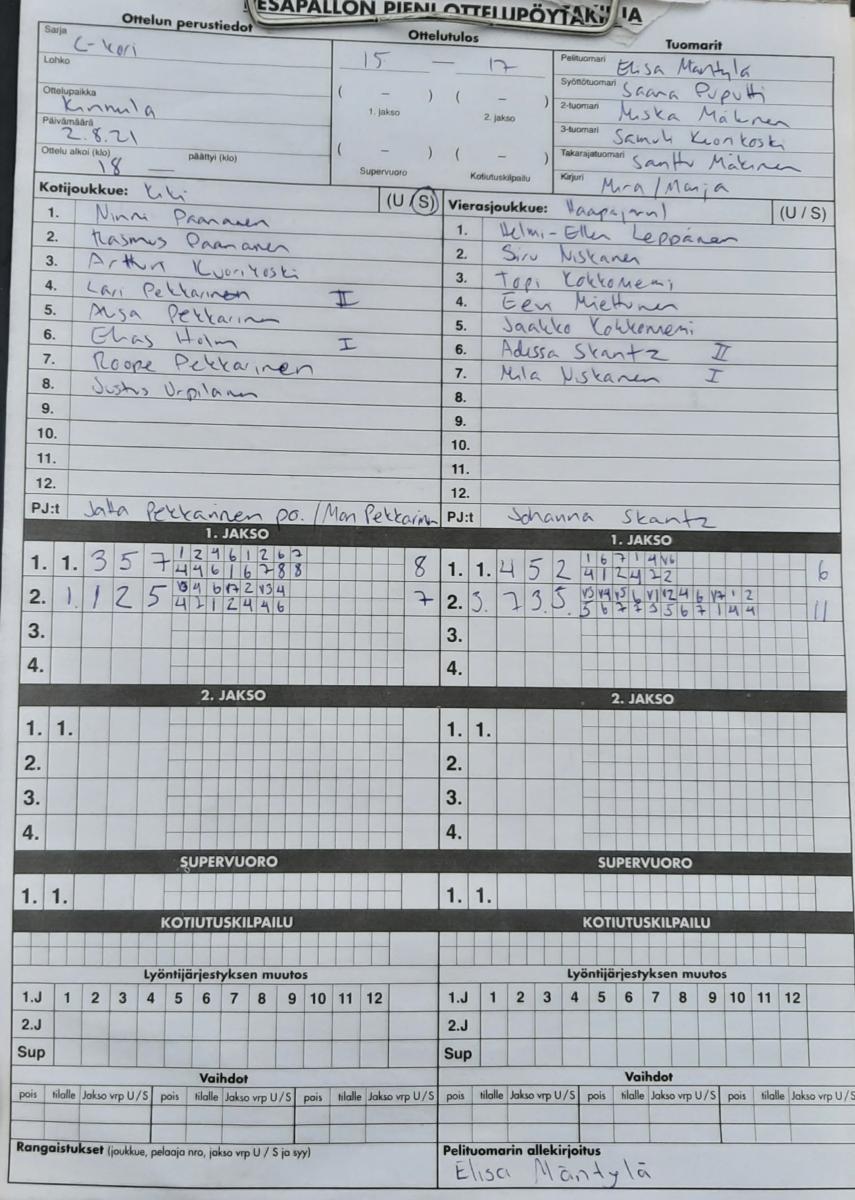 PESÄPALLON PIENI OTTELUPÖYTÄKIRJA
Ottelun perustiedot
Sarja C-kori
Lohko
Ottelupaikka Kinnula
Päivämäärä 2.8.21
Ottelu alkoi (klo) 18 päättyi (klo)
Ottelutulos
15 — 17
( – ) ( – )
1. jakso 2. jakso
( – ) ( – )
Supervuoro Kotiutuskilpailu
Tuomarit
Pelituomari Elisa Mäntylä
Syöttötuomari Saana Puputti
2-tuomari Miska Mäkinen
3-tuomari Samuli Kuorikoski
Takarajatuomari Santtu Mäkinen
Kirjuri Mira/Manja
Kotijoukkue: KiKi (U / S)
1. Ninni Paananen
2. Rasmus Paananen
3. Artturi Kuorikoski
4. Lari Pekkarinen II
5. Pekkarinen
6. Elias Holm I
7. Roope Pekkarinen
8. Justus Urpilainen
9.
10.
11.
12.
PJ:t Pekkarinen po. / Mari Pekkarinen
Vierasjoukkue: Haapajärvi (U / S)
1. Helmi-Ellen Leppänen
2. Siru Niskanen
3. Topi Kokkoniemi
4. Eevi Miettunen
5. Jaakko Kokkoniemi
6. Adessa Skantz II
7. Mila Niskanen I
8.
9.
10.
11.
12.
PJ:t Johanna Skantz
1. JAKSO
1. 1. 3 5 7 1 2 4 6 1 2 6 7 8
4 4 6 1 6 7 8 8
2. 1. 1 2 5 7
4 2 1 2 4 4 6
3.
4.
1. JAKSO
1. 1. 4 5 2 6
4 1 2 4 2 2
2. 3. 7 3. 5. 11
5 6 7 7 3 5 6 7 1 4 4
3.
4.
2. JAKSO
1. 1.
2.
3.
4.
2. JAKSO
1. 1.
2.
3.
4.
SUPERVUORO
1. 1.
SUPERVUORO
1. 1.
KOTIUTUSKILPAILU
KOTIUTUSKILPAILU
Lyöntijärjestyksen muutos
1.J 1 2 3 4 5 6 7 8 9 10 11 12
2.J
Sup
Lyöntijärjestyksen muutos
1.J 1 2 3 4 5 6 7 8 9 10 11 12
2.J
Sup
Vaihdot
pois tilalle Jakso vrp U / S pois tilalle Jakso vrp U / S pois tilalle Jakso vrp U / S
Vaihdot
pois tilalle Jakso vrp U / S pois tilalle Jakso vrp U / S pois tilalle Jakso vrp U / S
Rangaistukset (joukkue, pelaaja nro, jakso vrp U / S ja syy)
Pelituomarin allekirjoitus
Elisa Mäntylä